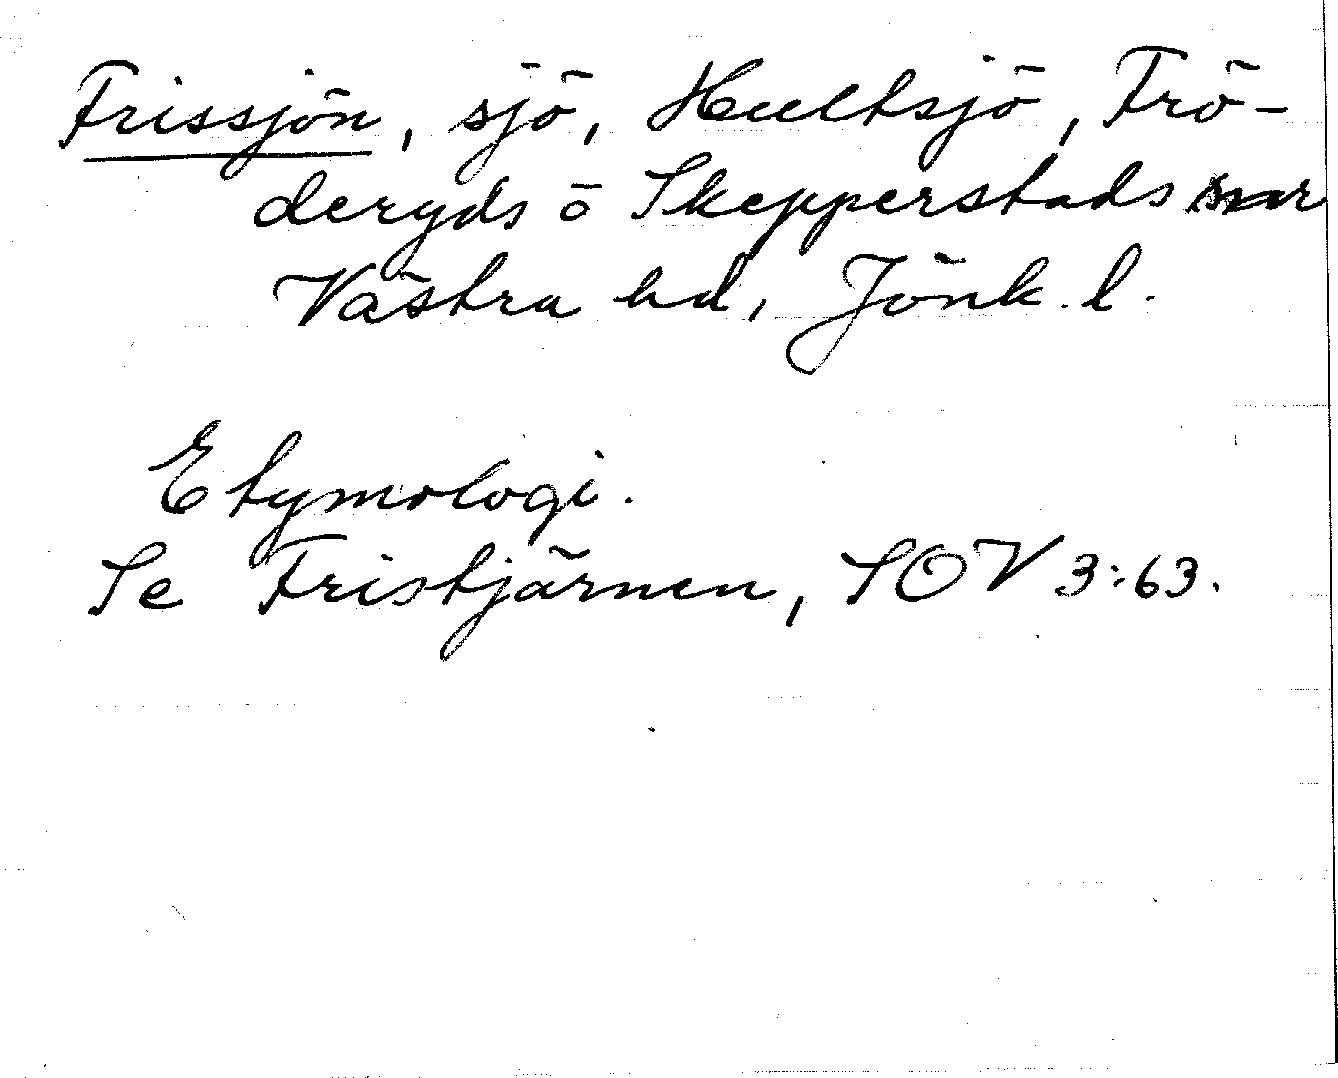 Frissjön, sjö, Hultsjö, Frö-
deryds o Skepperstads snar
Västra hd, Jönk. l.
Etymologi.
Se Fristjärnen, SOV 3:63.